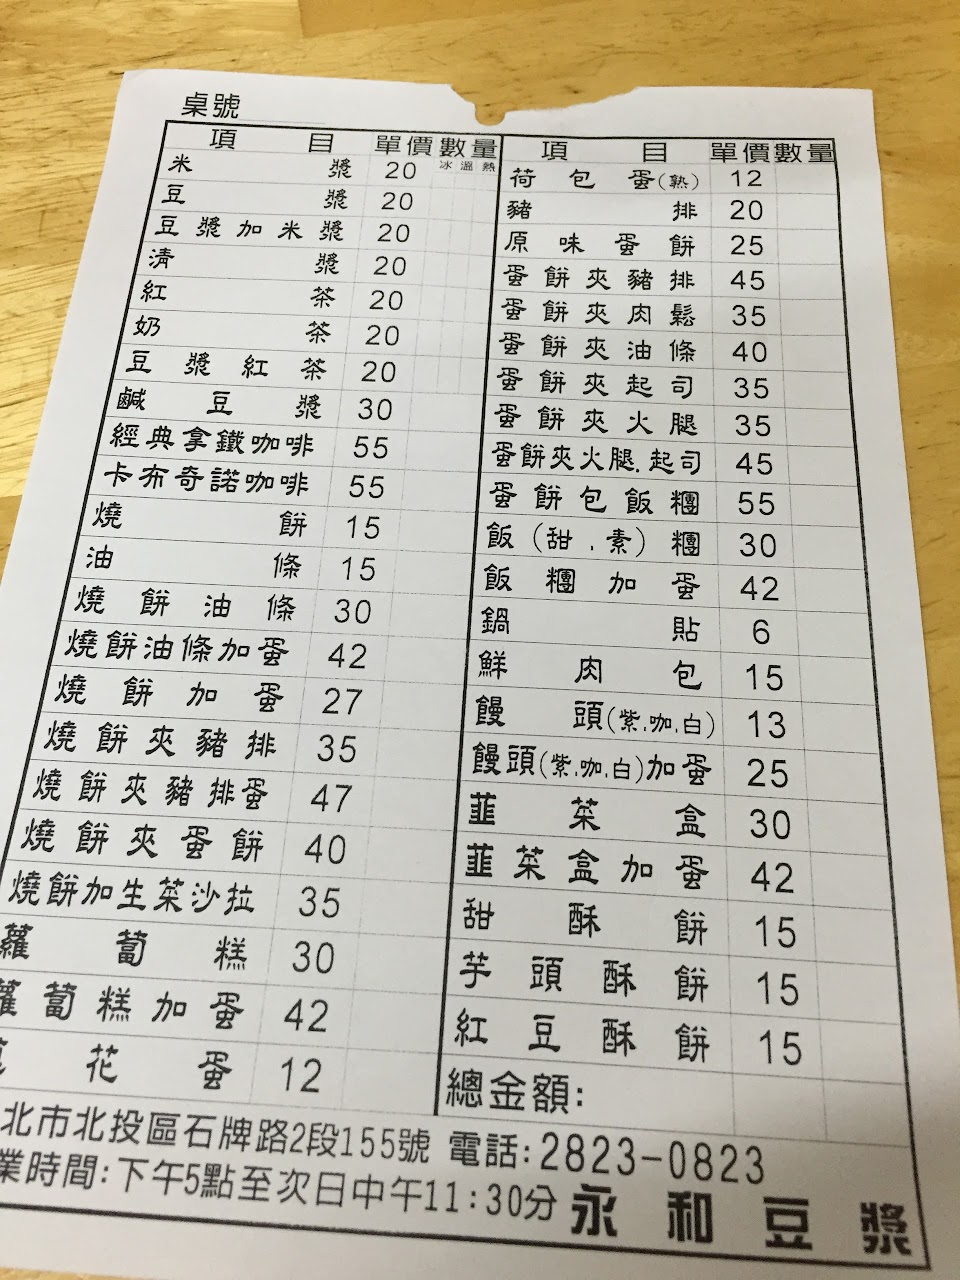 桌號
項目 單價 數量
米漿 20 冰 溫 熱
豆漿 20
豆漿加米漿 20
清漿 20
紅茶 20
奶茶 20
豆漿紅茶 20
鹹豆漿 30
經典拿鐵咖啡 55
卡布奇諾咖啡 55
燒餅 15
油條 15
燒餅油條 30
燒餅油條加蛋 42
燒餅加蛋 27
燒餅夾豬排 35
燒餅夾豬排蛋 47
燒餅夾蛋餅 40
燒餅加生菜沙拉 35
蘿蔔糕 30
蘿蔔糕加蛋 42
花蛋 12
項目 單價 數量
荷包蛋(熟) 12
豬排 20
原味蛋餅 25
蛋餅夾豬排 45
蛋餅夾肉鬆 35
蛋餅夾油條 40
蛋餅夾起司 35
蛋餅夾火腿 35
蛋餅夾火腿.起司 45
蛋餅包飯糰 55
飯(甜.素)糰 30
飯糰加蛋 42
鍋貼 6
鮮肉包 15
饅頭(紫.咖.白) 13
饅頭(紫.咖.白)加蛋 25
韮菜盒 30
韮菜盒加蛋 42
甜酥餅 15
芋頭酥餅 15
紅豆酥餅 15
總金額:
北市北投區石牌路2段155號 電話:2823-0823
業時間:下午5點至次日中午11:30分 永和豆漿